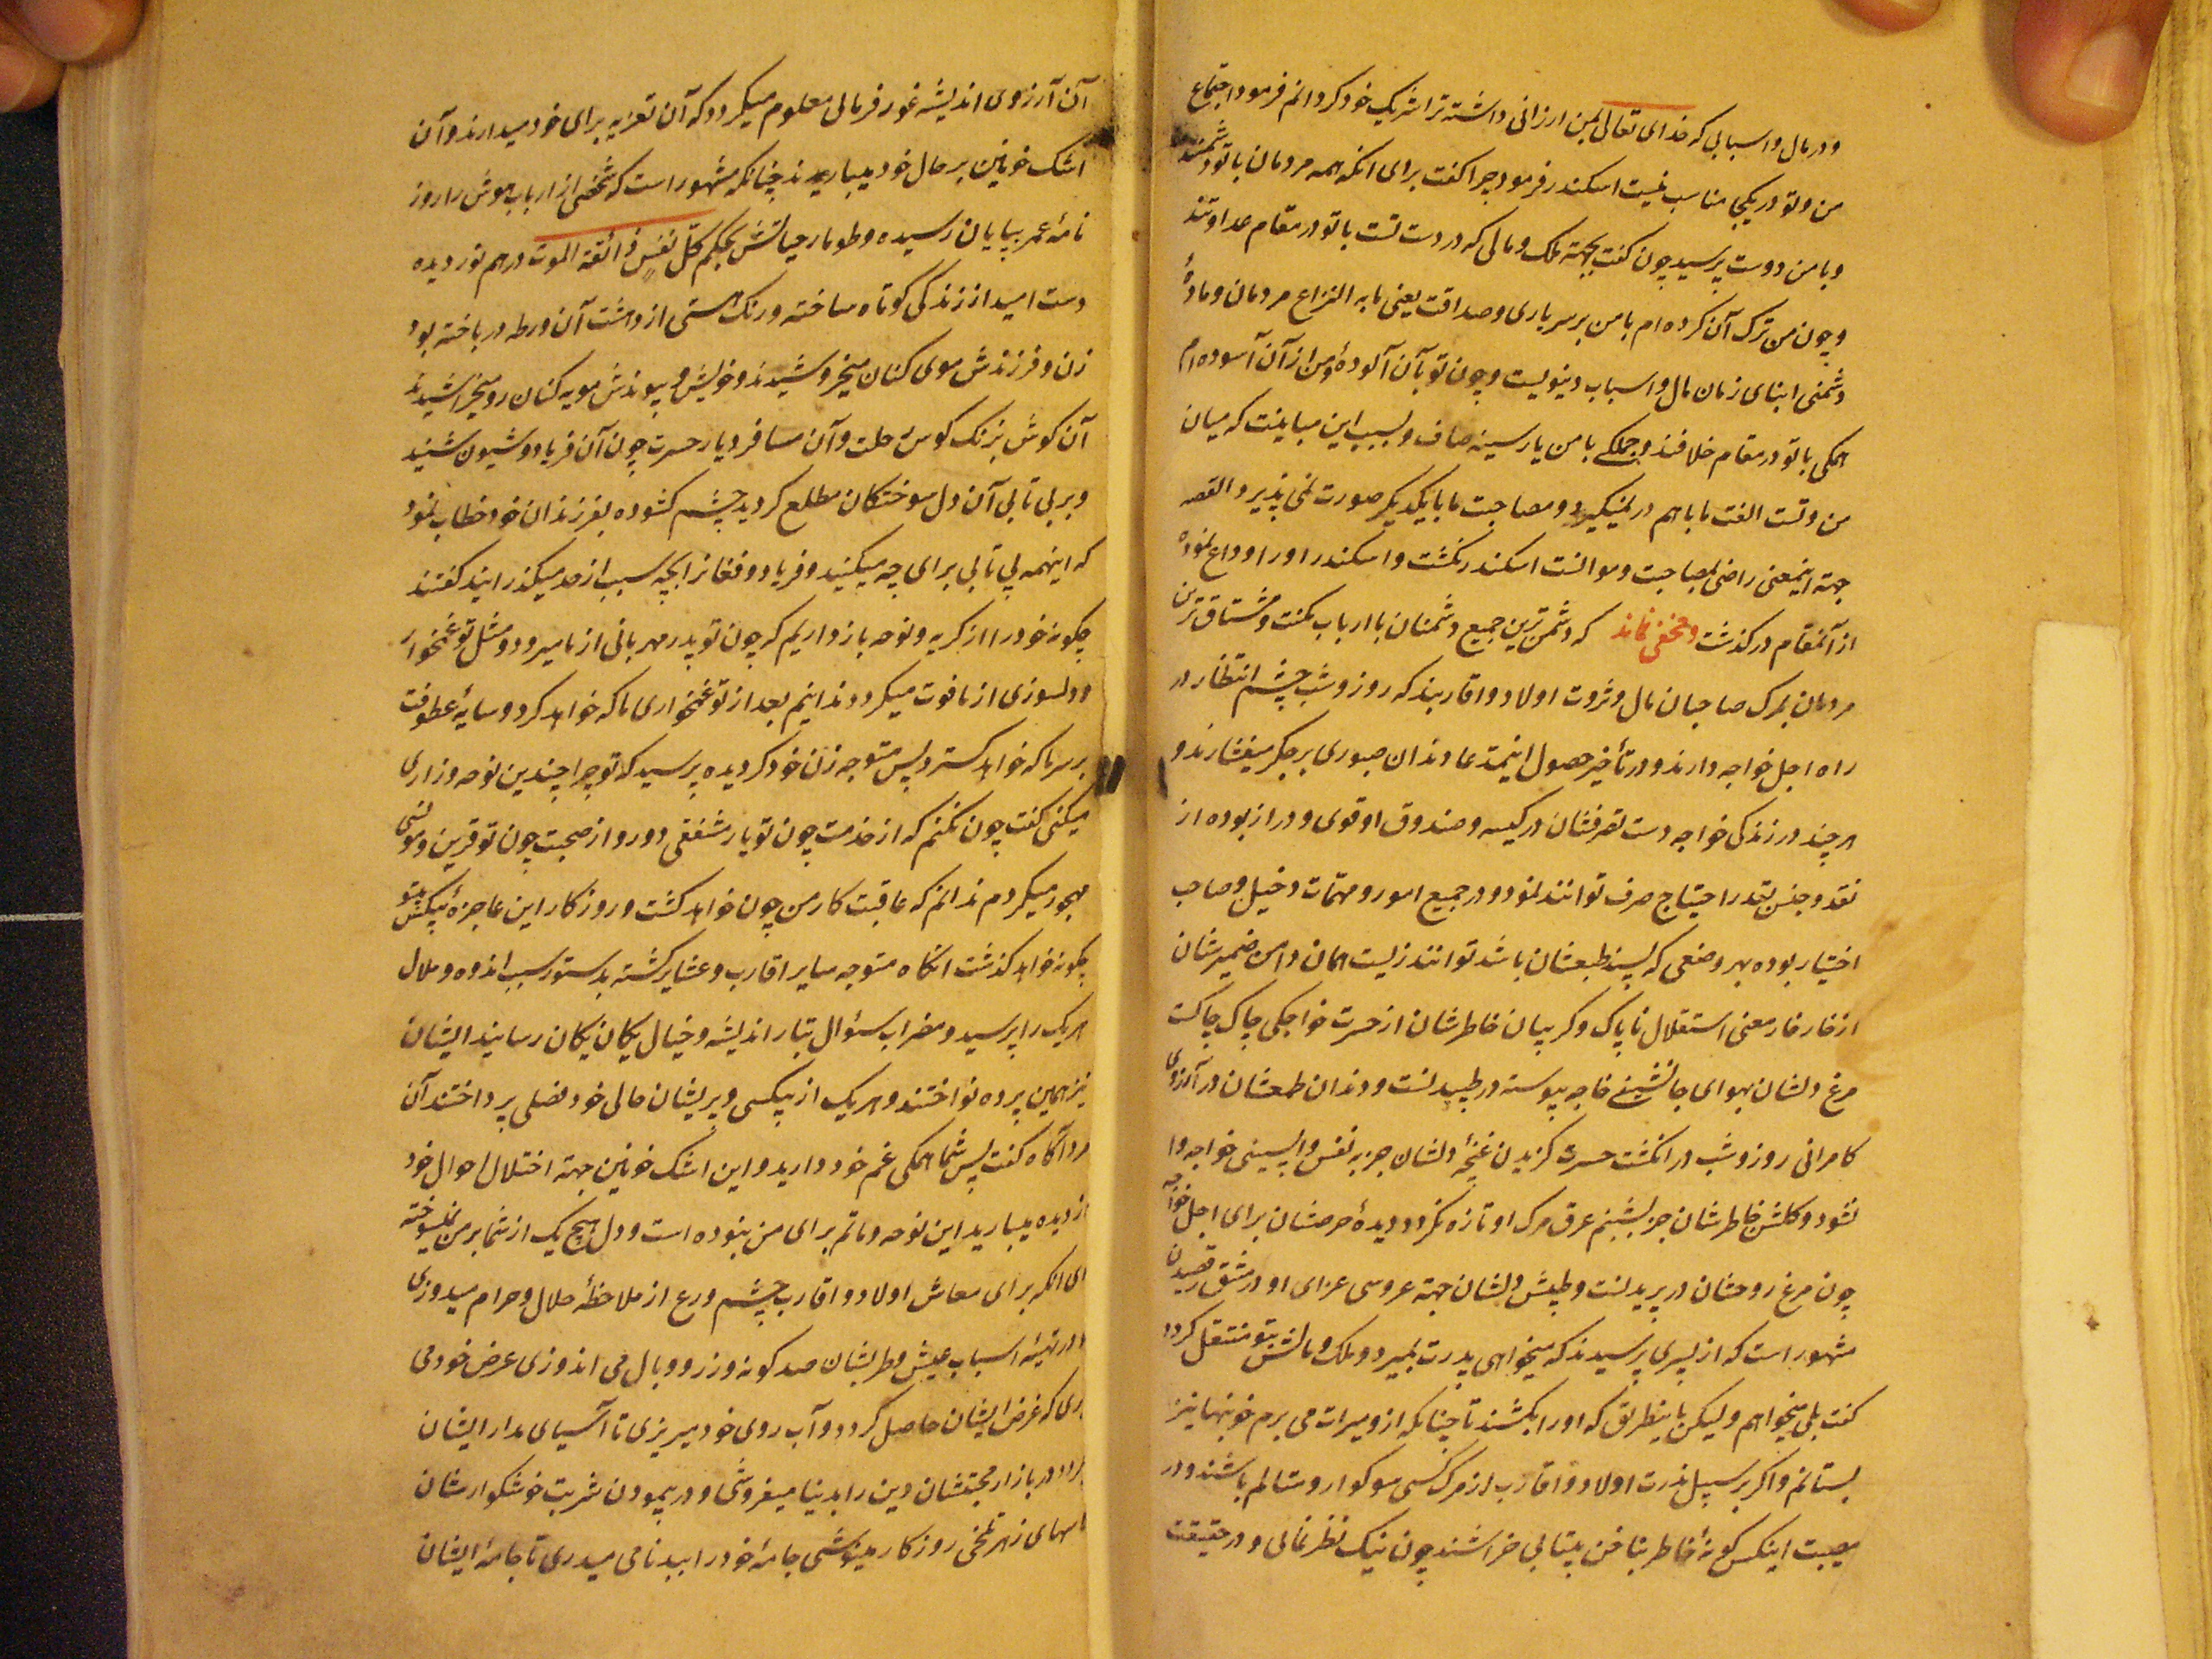 و در مال و اسبابی که خدای تعالی بمن ارزانی داشته ترا شریک خود کردانم فرمود اجتماع
من و تو در یکجا مناسب نیست اسکندر فرمود چرا کفت برای انکه همه مردمان با تو دشمنند
و با من دوست پرسید چون کفت بجهته ملک و مالی که در دست تست با تو در مقام عداوتند
و چون من ترک آن کرده ام با من بر سر یاری و صداقت یعنی ما به النزاع مردمان و مادهٔ
دشمنی ابنای زمان مال و اسباب دنیویست و چون تو بآن آلودهٔ و من از آن آسوده ام
همکی با تو در مقام خلافند و جملکی با من یار سینه صاف و بسبب این مباینت که میان
من و تست الفت ما با هم در نمیکیرد و مصاحبت ما با یکدیکر صورت نمی پذیرد القصه
جهته اینمعنی راضی بمصاحبت و موانست اسکندر نکشت و اسکندر او را وداع نموده
از آنمقام در کذشت و مخفی نماند که دشمن ترین جمیع دشمنان با ارباب مکنت و مشتاق ترین
مردمان بمرک صاحبان مال و ثروت اولاد و اقاربند که روز و شب چشم انتظار در
راه اجل خواجه دارند و در تأخیر حصول اینمدعا دندان صبوری بر جکر میفشارند و
هر چند در زندکی خواجه دست تصرفشان در کیسه و صندوق او قوی و دراز بوده از
نقد و جنس بقدر احتیاج صرف توانند نمود و در جمیع امور و مهمات دخیل و صاحب
اختیار بوده بهر وضعی که پسند طبعشان باشد توانند زیست همان دامن ضمیرشان
از خار خار معنی استقلال نا پاک و کریبان خاطرشان از حسرت خواجکی چاک چاکست
مرغ دلشان بهوای جانشینی خاجه پیوسته در طپیدنست و دندان طمعشان در آرزوی
کامرانی روز و شب در انکشت حسرت کزیدن غنچهٔ دلشان جز به نفس واپسینی خواجه وا
نشود و کلشن خاطرشان جز بشبنم عرق مرک او تازه نکردد دیدهٔ حرصشان برای اجل خواجه
چون مرغ روحشان در پریدنست و طپش دلشان جهته عروسی عزای او در مشق رقصیدن
مشهور است که از پسری پرسیدند که میخواهی پدرت بمیرد و ملک و مالش بتو منتقل کردد
کفت بلی میخواهم و لیکن باینطریق که او را بکشند تا چنانکه ازو میراث می برم خونبها نیز
بستانم و اکر بر سبیل ندرت اولاد و اقارب از مرک کسی سوکوار و متالم باشند و در
مصیبت اینکس کونهٔ خاطر بناخن بیتابی خراشند چون نیک نظر نمائی و در حقیقت
آن آرزوی اندیشه غور فرمائی معلوم میکردد که آن تعزیه برای خود میدارند و آن
اشک خونین بر حال خود میبارند چنانکه مشهور است که شخصی از ارباب هوش را روز
نامهٔ عمر بپایان رسیده و طومار حیاتش بحکم کل نفس ذائقة الموت در هم نوردیده
دست امید از زندکی کوتاه ساخته و رنک هستی از دهشت آن ورطه در باخته بود
زن و فرزندش موی کنان میخروشیدند و خویش و پیوندش مویه کنان رو میخراشیدند
آن کوش بزنک کوس رحلت و آن مسافر دیار حسرت چون آن فریاد و شیون شنید
و بر بی تابی آن دل سوختکان مطلع کردید چشم کشوده بفرزندان خود خطاب نمود
که اینهمه بی تابی برای چه میکنید و فریاد و فغانرا بچه سبب از حد میکذرانید کفتند
چکونه خود را از کریه و نوحه باز داریم که چون تو پدر مهربانی از ما میرود و مثل تو غمخوار
و دلسوزی از ما فوت میکردد ندانیم بعد از تو غمخواری ما که خواهد کرد و سایهٔ عطوفت
بر سر ما که خواهد کسترد پس متوجه زن خود کردیده پرسید که تو چرا چندین نوحه و زاری
میکنی کفت چون نکنم که از خدمت چون تو یار مشفقی دور و از صحبت چون تو قرین و مونسی
مهجور میکردم ندانم که عاقبت کار من چون خواهد کشت و روزکار این عاجزهٔ بیکس بیتو
چکونه خواهد کذشت انکاه متوجه سایر اقارب و عشایر کشته بدستور سبب اندوه و ملال
هر یک را پرسید و مضراب سئوال بتار اندیشه و خیال یکان یکان رسانید ایشان
نیز همین پرده نواختند و هر یک از بیکسی و پریشان حالی خود فصلی پرداختند آن
مرد آکاه کفت پس شما همکی غم خود دارید و این اشک خونین جهته اختلال احوال خود
از دیده میبارید این نوحه و ماتم برای من نبوده است و دل هیچ یک از شما بر من نمیسوخته
ای انکه برای معاش اولاد و اقارب چشم ورع از ملاحظهٔ حلال و حرام میدوزی
و در تهیهٔ اسباب عیش و طربشان صد کونه وزر و وبال می اندوزی عرض خود می
بری که غرض ایشان حاصل کردد و آب روی خود میریزی تا آسیای مدار ایشان
کردد در بازار محبتشان دین را بدنیا میفروشی و در پیمودن شربت خوشکوارشان
کاسهای زهر تلخی روزکار مینوشی جامهٔ خود را ببدنامی میدری تا جامهٔ ایشان